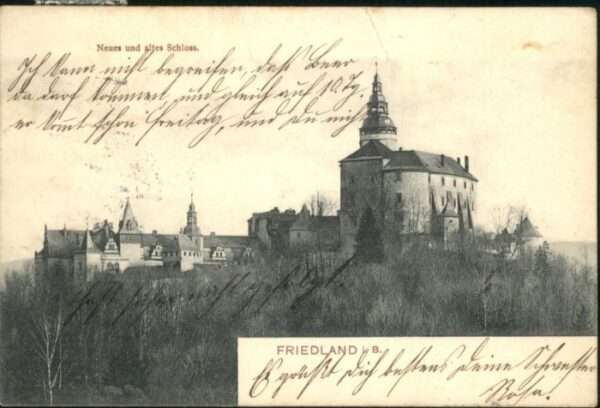 Neues und altes Schloss.
Ich kann nicht begreifen, daß Beer
da darf kommen, und gleich auf 10 Tg.
er komt schon Freitag, und Du nicht
FRIEDLAND i. B.
Es grüßt dich bestens Deine Schwester
Rosa.